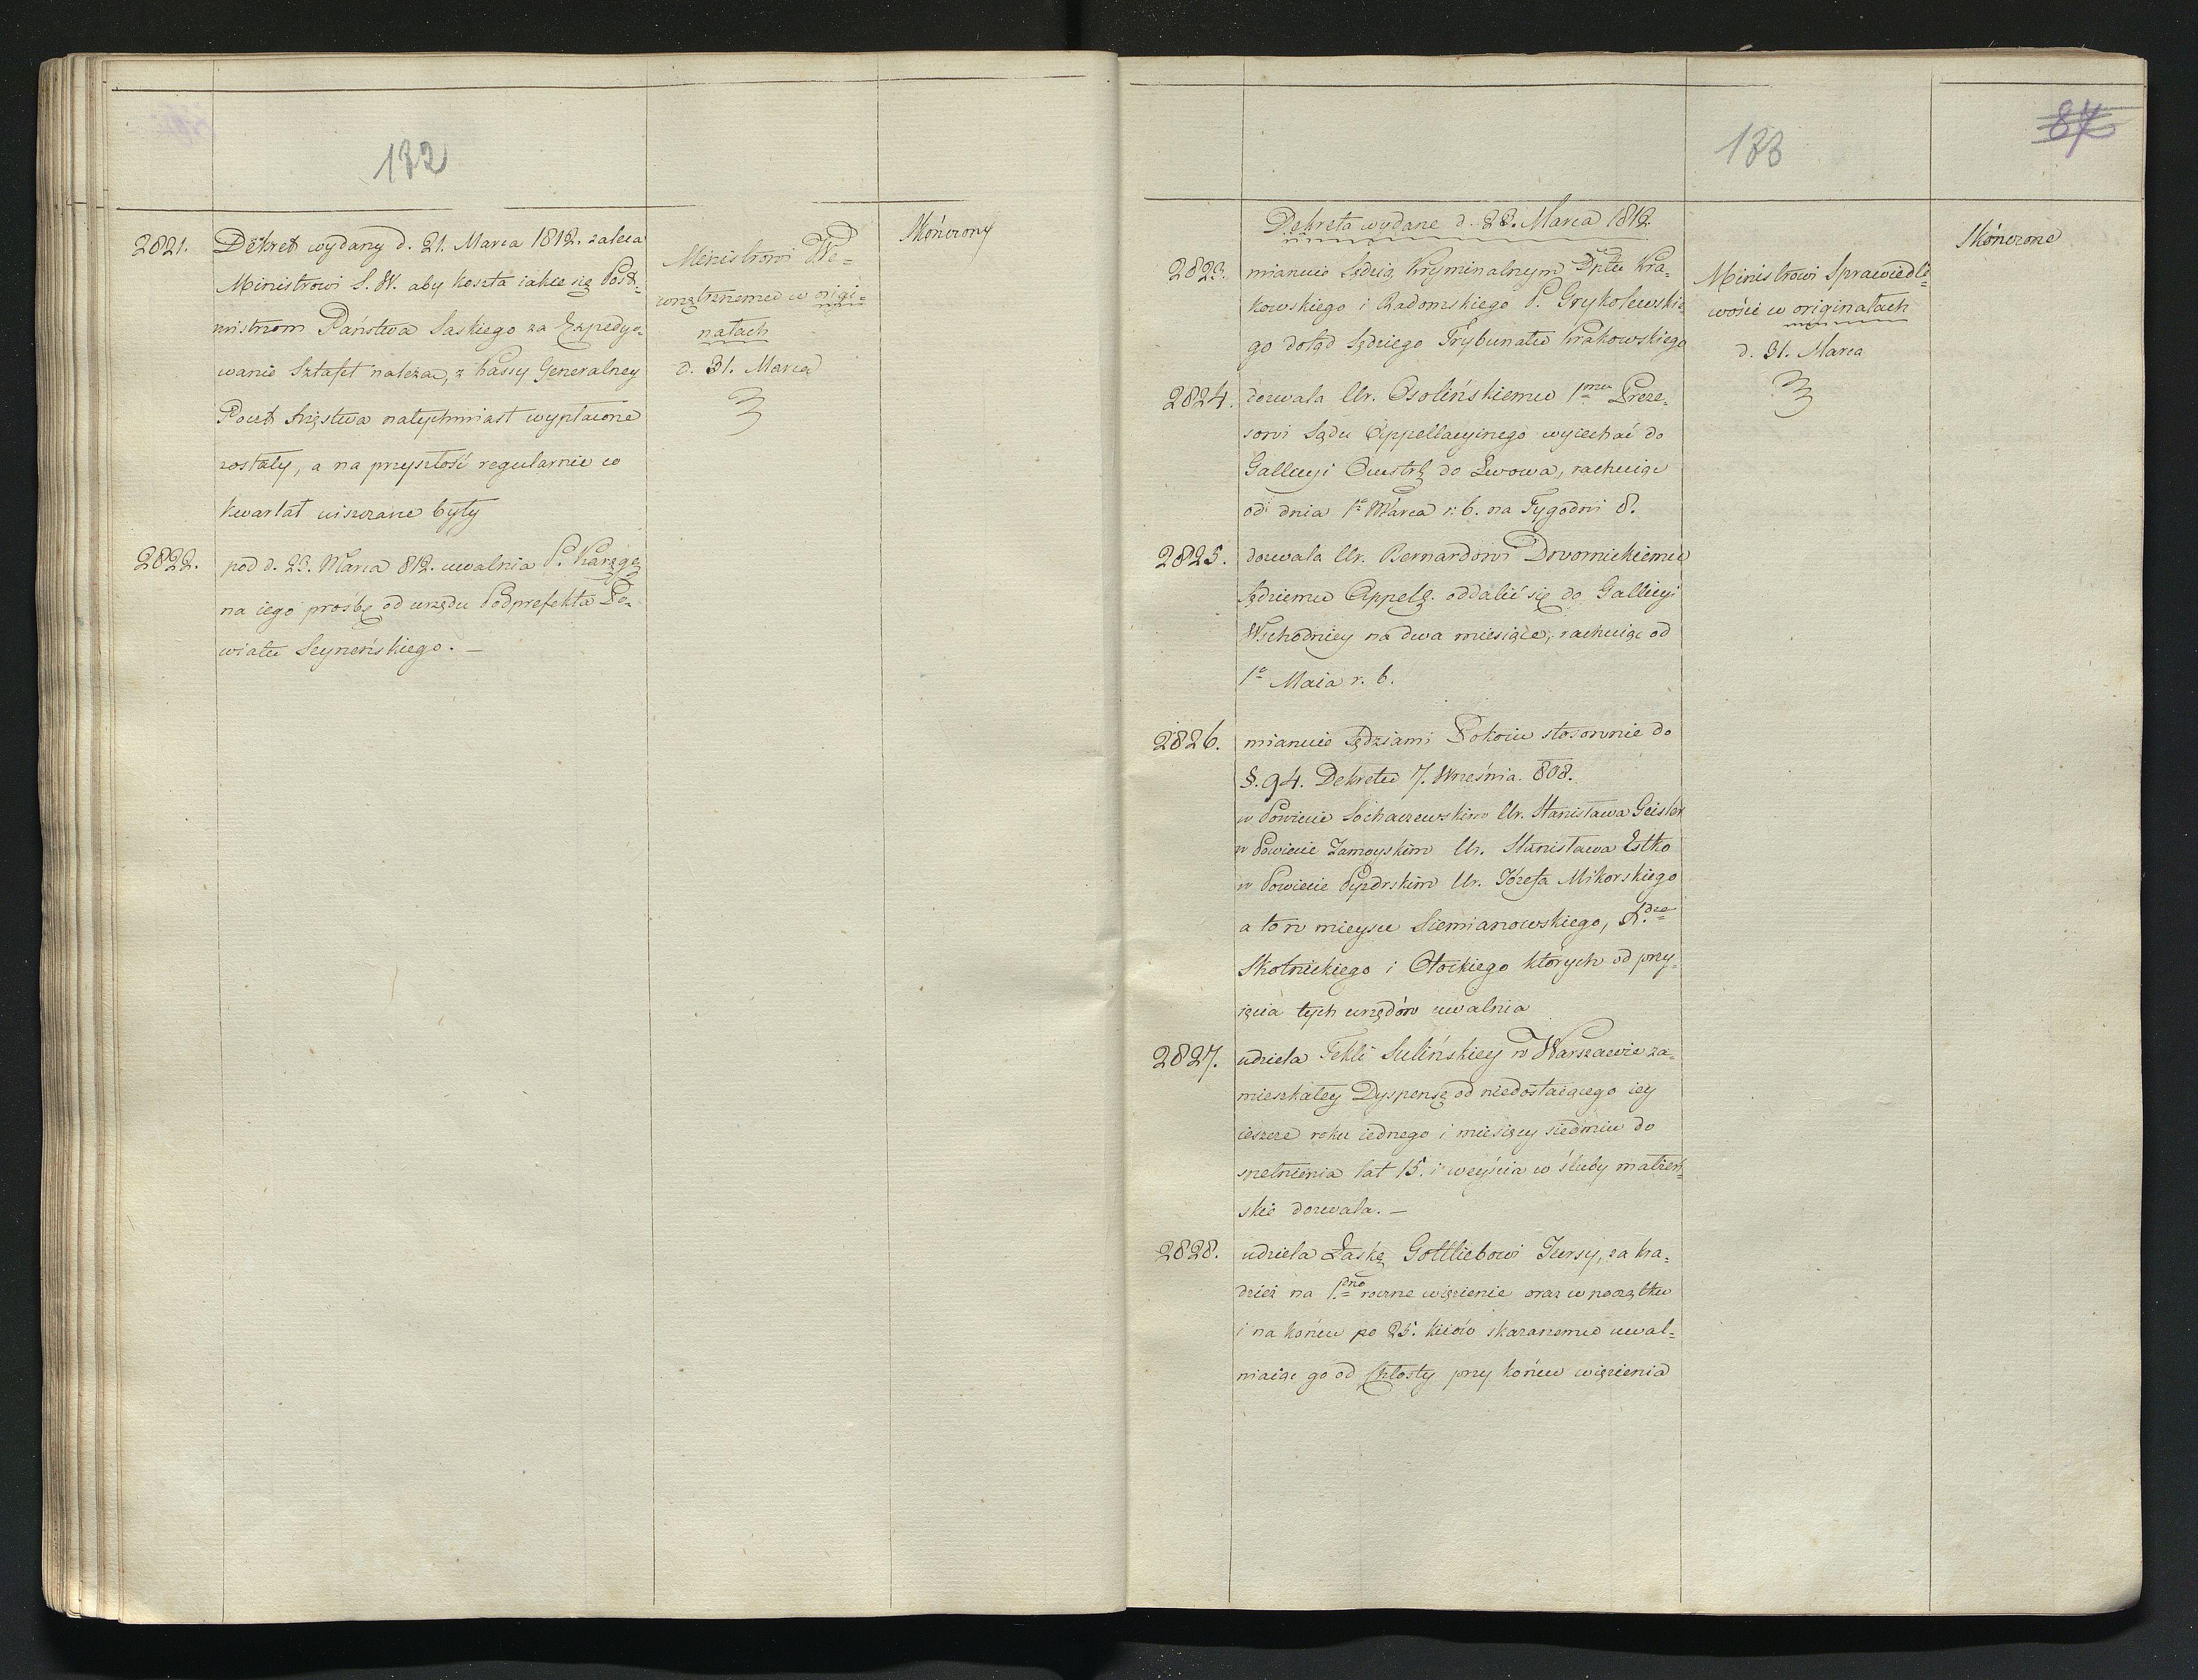 182
2821. Dekret wydany d. 21. Marca 1812. zaleca
Ministrowi S. W. aby koszta iakie się Post-
mistrzom Państwa Saskiego za Expedyo-
wanie Sztafet należą, z Kassy Generalney
Poczt Xięstwa natychmiast wypłacone
zostały, a na przyszłość regularnie co
kwartał uiszczane były
Ministrowi We=
wnętrznemu w origi=
nałach
d. 31. Marca
Skończony
2822. pod d. 23. Marca 812. uwalnia P. Karęgę
na iego prośbę od urzędu Podprefekta Po-
wiatu Seyneńskiego. —
183
87
Dekreta wydane d. 23. Marca 1812
2823. mianuie Sędzią Kryminalnym Dptu Kra-
kowskiego i Radomskiego P. Grykolewskie-
go dotąd Sędziego Trybunału Krakowskiego
Ministrowi Sprawiedli=
wości w originałach
d. 31. Marca
Skończone
2824. dozwala Ur. Osolińskiemu 1mu Preze-
sowi Sądu Appellacyinego wyiechać do
Gallicyi Austr: do Lwowa, rachuiąc
od dnia 1o Marca r. b. na Tygodni 8.
2825. dozwala Ur. Bernardowi Dwornickiemu
Sędziemu Appel: oddalić się do Gallicyi
Wschodniey na dwa miesiące, rachuiąc od
1o Maia r. b.
2826. mianuie Sędziami Pokoiu stosownie do
§. 94. Dekretu 7. Września 808.
w Powiecie Sochaczewskim Ur. Stanisława Geisler
w Powiecie Zamoyskim Ur. Stanisława Estko
w Powiecie Pyzdrskim Ur. Józefa Mikorskiego
a to w mieysce Siemianowskiego,
Skotnickiego i Otockiego których od przy-
ięcia tych urzędów uwalnia
2827. udziela Tekli Sulińskiey w Warszawie za-
mieszkałey Dyspensę od niedostaiącego iey
ieszcze roku iednego i miesięcy siedmiu do
spełnienia lat 15. i weyścia w śluby małżeń=
skie dozwala. —
2828. udziela Łaskę Gottliebowi Jursy, za kra-
dzież na 1.no roczne więzienie oraz w początku
i na końcu po 25. kiiów skazanemu uwal=
niaiąc go od Chłosty przy końcu więzienia